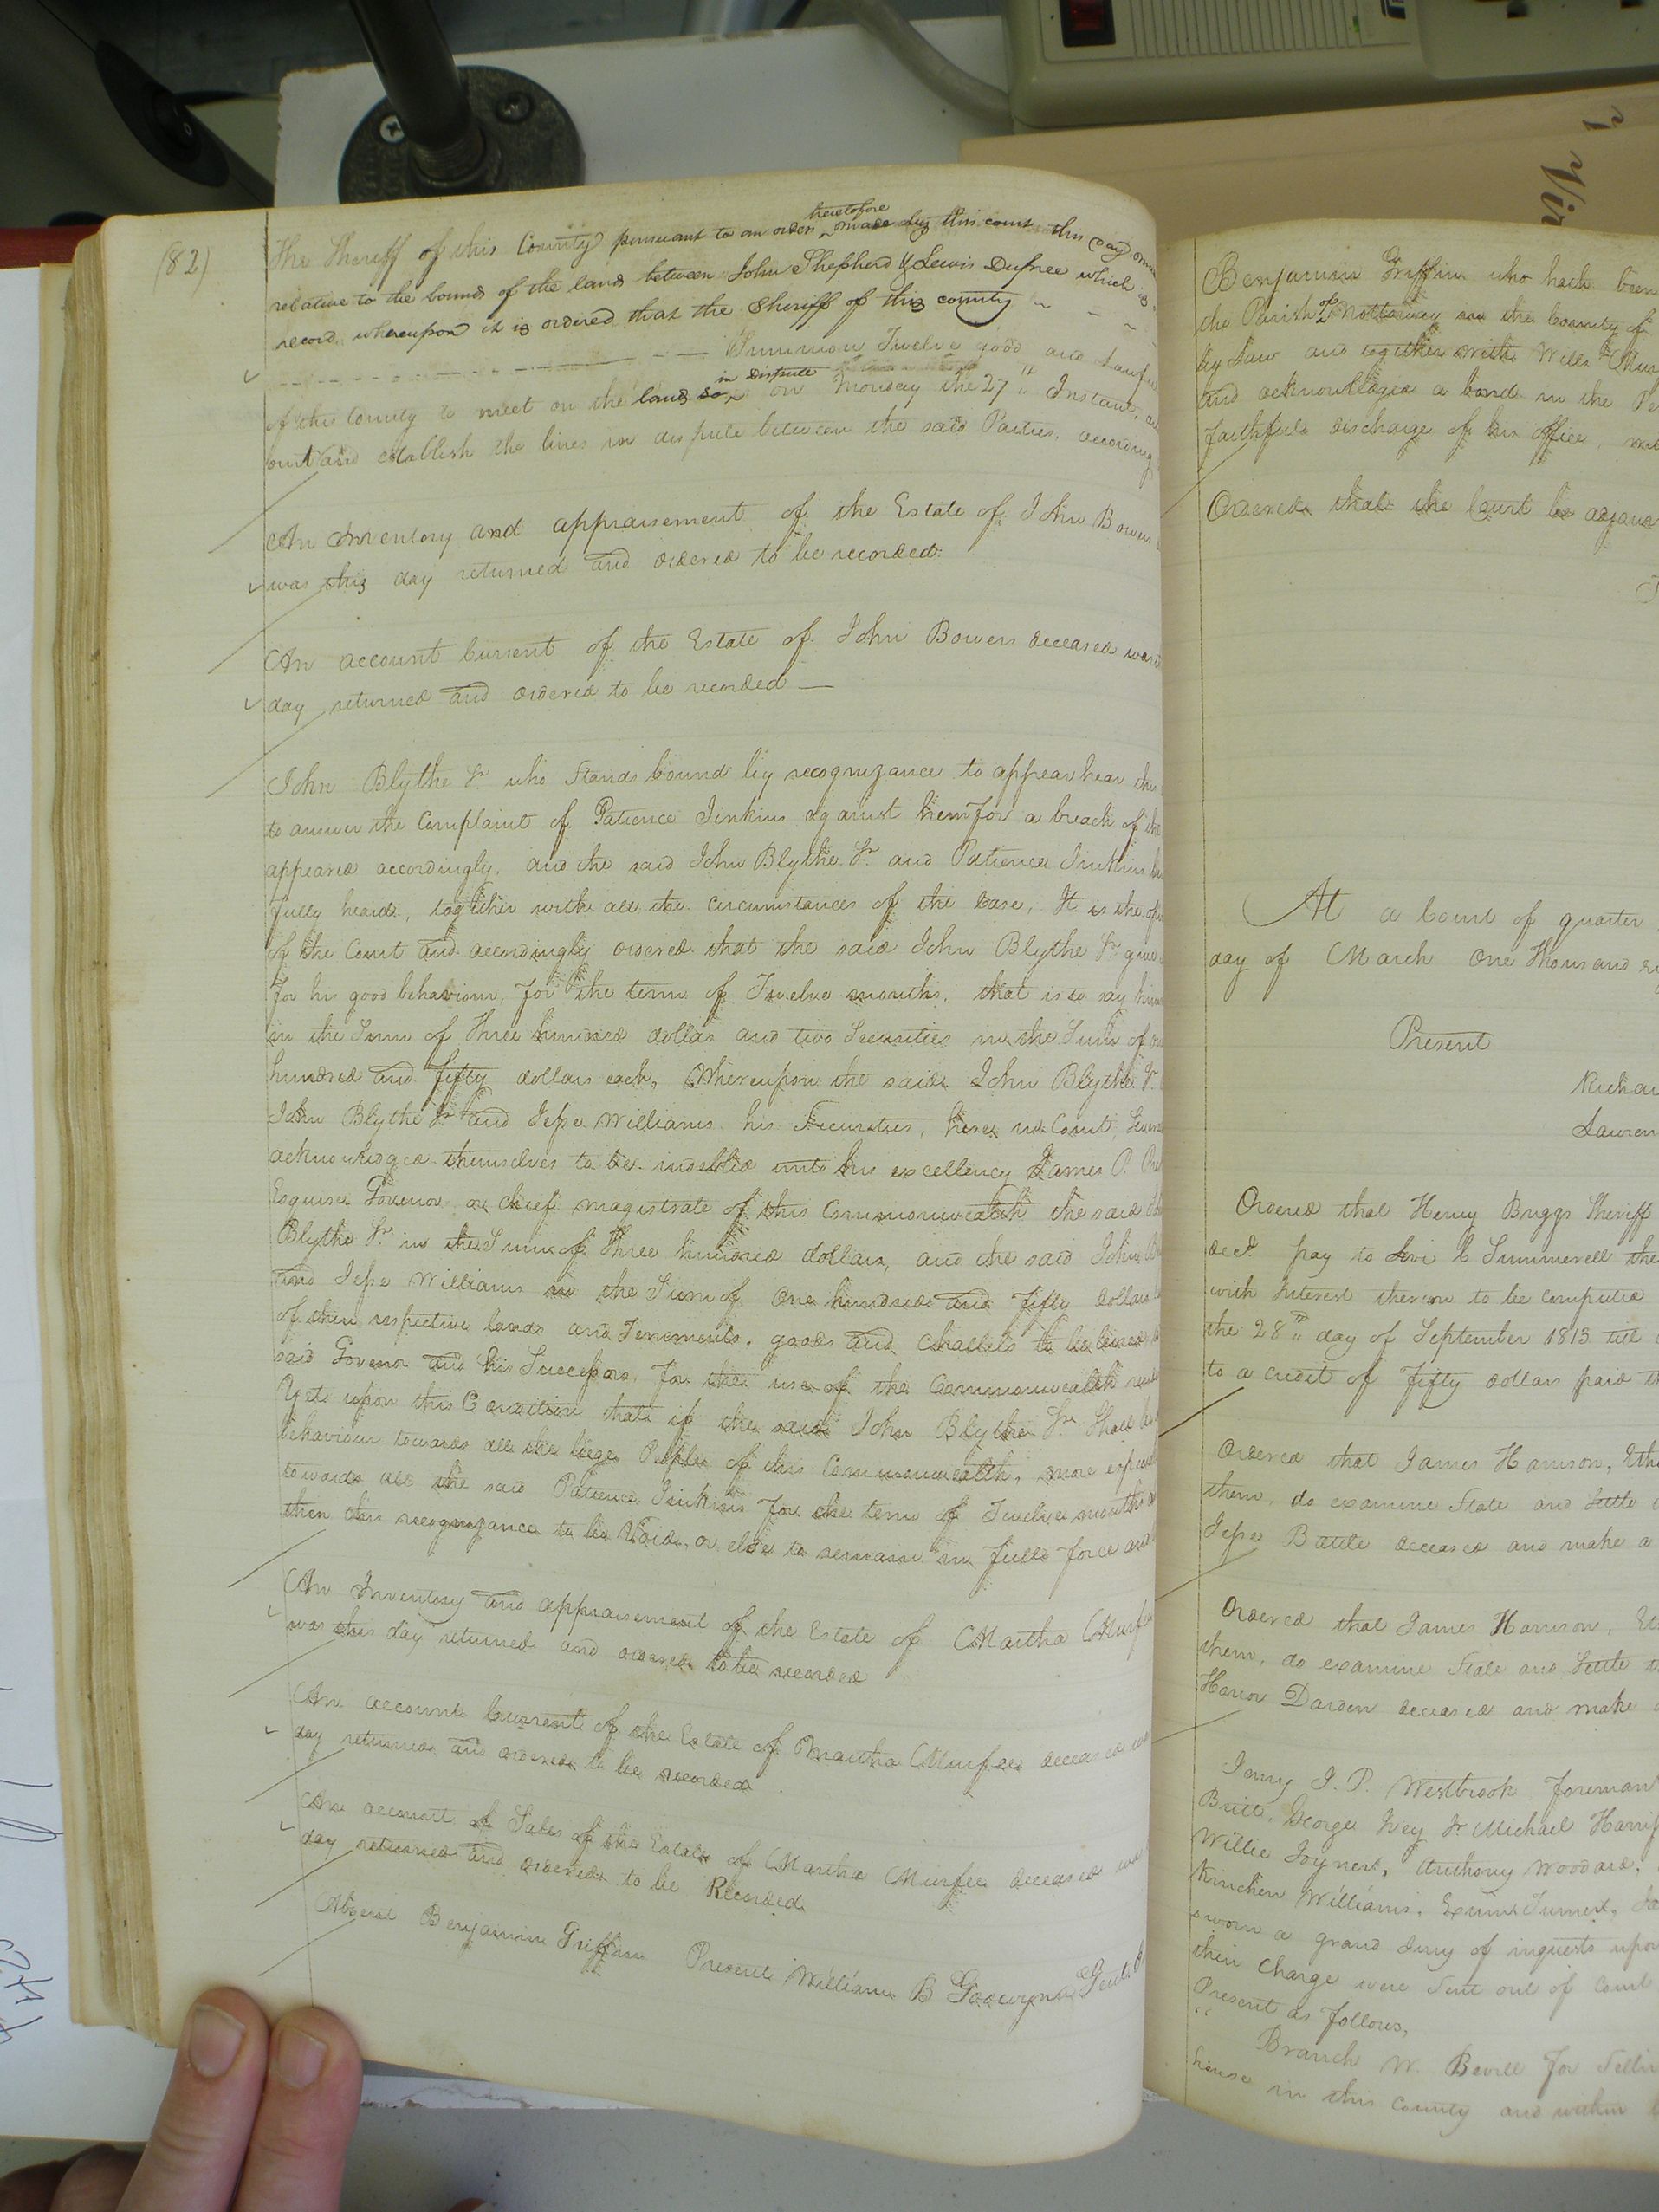 (82)
The Sheriff of this County pursuant to an order heretofore made by this court this day
relative to the bounds of the land between John Shepherd & Lewis Dupree which is
record, whereupon it is ordered that the Sheriff of this county
Summon Twelve good and Lawfu
of this County to meet on the land in Dispute on Monday the 27th Instant
and establish the lines in dispute between the said Parties, according
An Inventory and appraisement of the Estate of John Bowers
was this day returned and ordered to be recorded
An account Current of the Estate of John Bowers deceased was
day returned and ordered to be recorded —
John Blythe Sr who Stands bound by recognizance to appear hear this
to answer the Complaint of Patience Jinkins against him for a breach of the
appeared accordingly, and the said John Blythe Sr and Patience Jinkins
fully heard, together with all the circumstances of the Case, It is the
of the Court and accordingly ordered that the said John Blythe Sr give
for his good behaviour, for the term of Twelve months, that is to say
in the Sum of Three hundred dollars and two Securities in the Sum of
hundred and fifty dollars each, Whereupon the said John Blythe Sr
John Blythe Jr and Jesse Williams his Securities, here in Court,
acknowledged themselves to be indebted unto his excellency James P.
Esquire Govenor or chief magistrate of this Commonwealth the said
Blythe Sr in the Sum of Three hundred dollars, and the said John
and Jesse Williams in the Sum of One hundred and fifty dollars
of their respective lands and Tenements, goods and Chattels to be levied
said Govenor and his Successors, for the use of the Commonwealth
Yet upon this Condition that if the said John Blythe Sr Shall
behaviour towards all the liege People of this Commonwealth, more
towards all the said Patience Jinkins for the term of Twelve months
then this recognizance to be Void, or else to remain in full force and
An Inventory and appraisement of the Estate of Martha
was this day returned and ordered to be recorded
An account Current of the Estate of Martha Murfee deceased
day returned and ordered to be recorded
An account of Sales of the Estate of Martha Murfee deceased
day returned and ordered to be Recorded
Absent Benjamin Griffin Present William B Goodwyn Gent
Benjamin Griffin who hath been
the Parish of Nottoway in the County of
by Law and together with Will
and acknowledged a bond in the
faithfull discharge of his office,
Ordered that the Court be
At a Court of quarter
day of March One Thousand
Present
Richa
Lawren
Ordered that Henry Briggs Sheriff
decd pay to Levi C Summerell the
with Interest thereon to be computed
the 28th day of September 1813 till
to a credit of Fifty dollars paid
Ordered that James Harrison,
them, do examine State and Settle
Jesse Battle deceased and make a
Ordered that James Harrison,
them, do examine State and Settle
Harson Darden deceased and make
Jury J. P. Westbrook foreman
George Ivey Jr Michael
Willie Joyner, Anthony Woodard,
Kinchen Williams, Exum
sworn a grand Jury of inquests upon
their Charge were Sent out of Court
Present as follows,
Branch W. Bevill for
house in this County and within